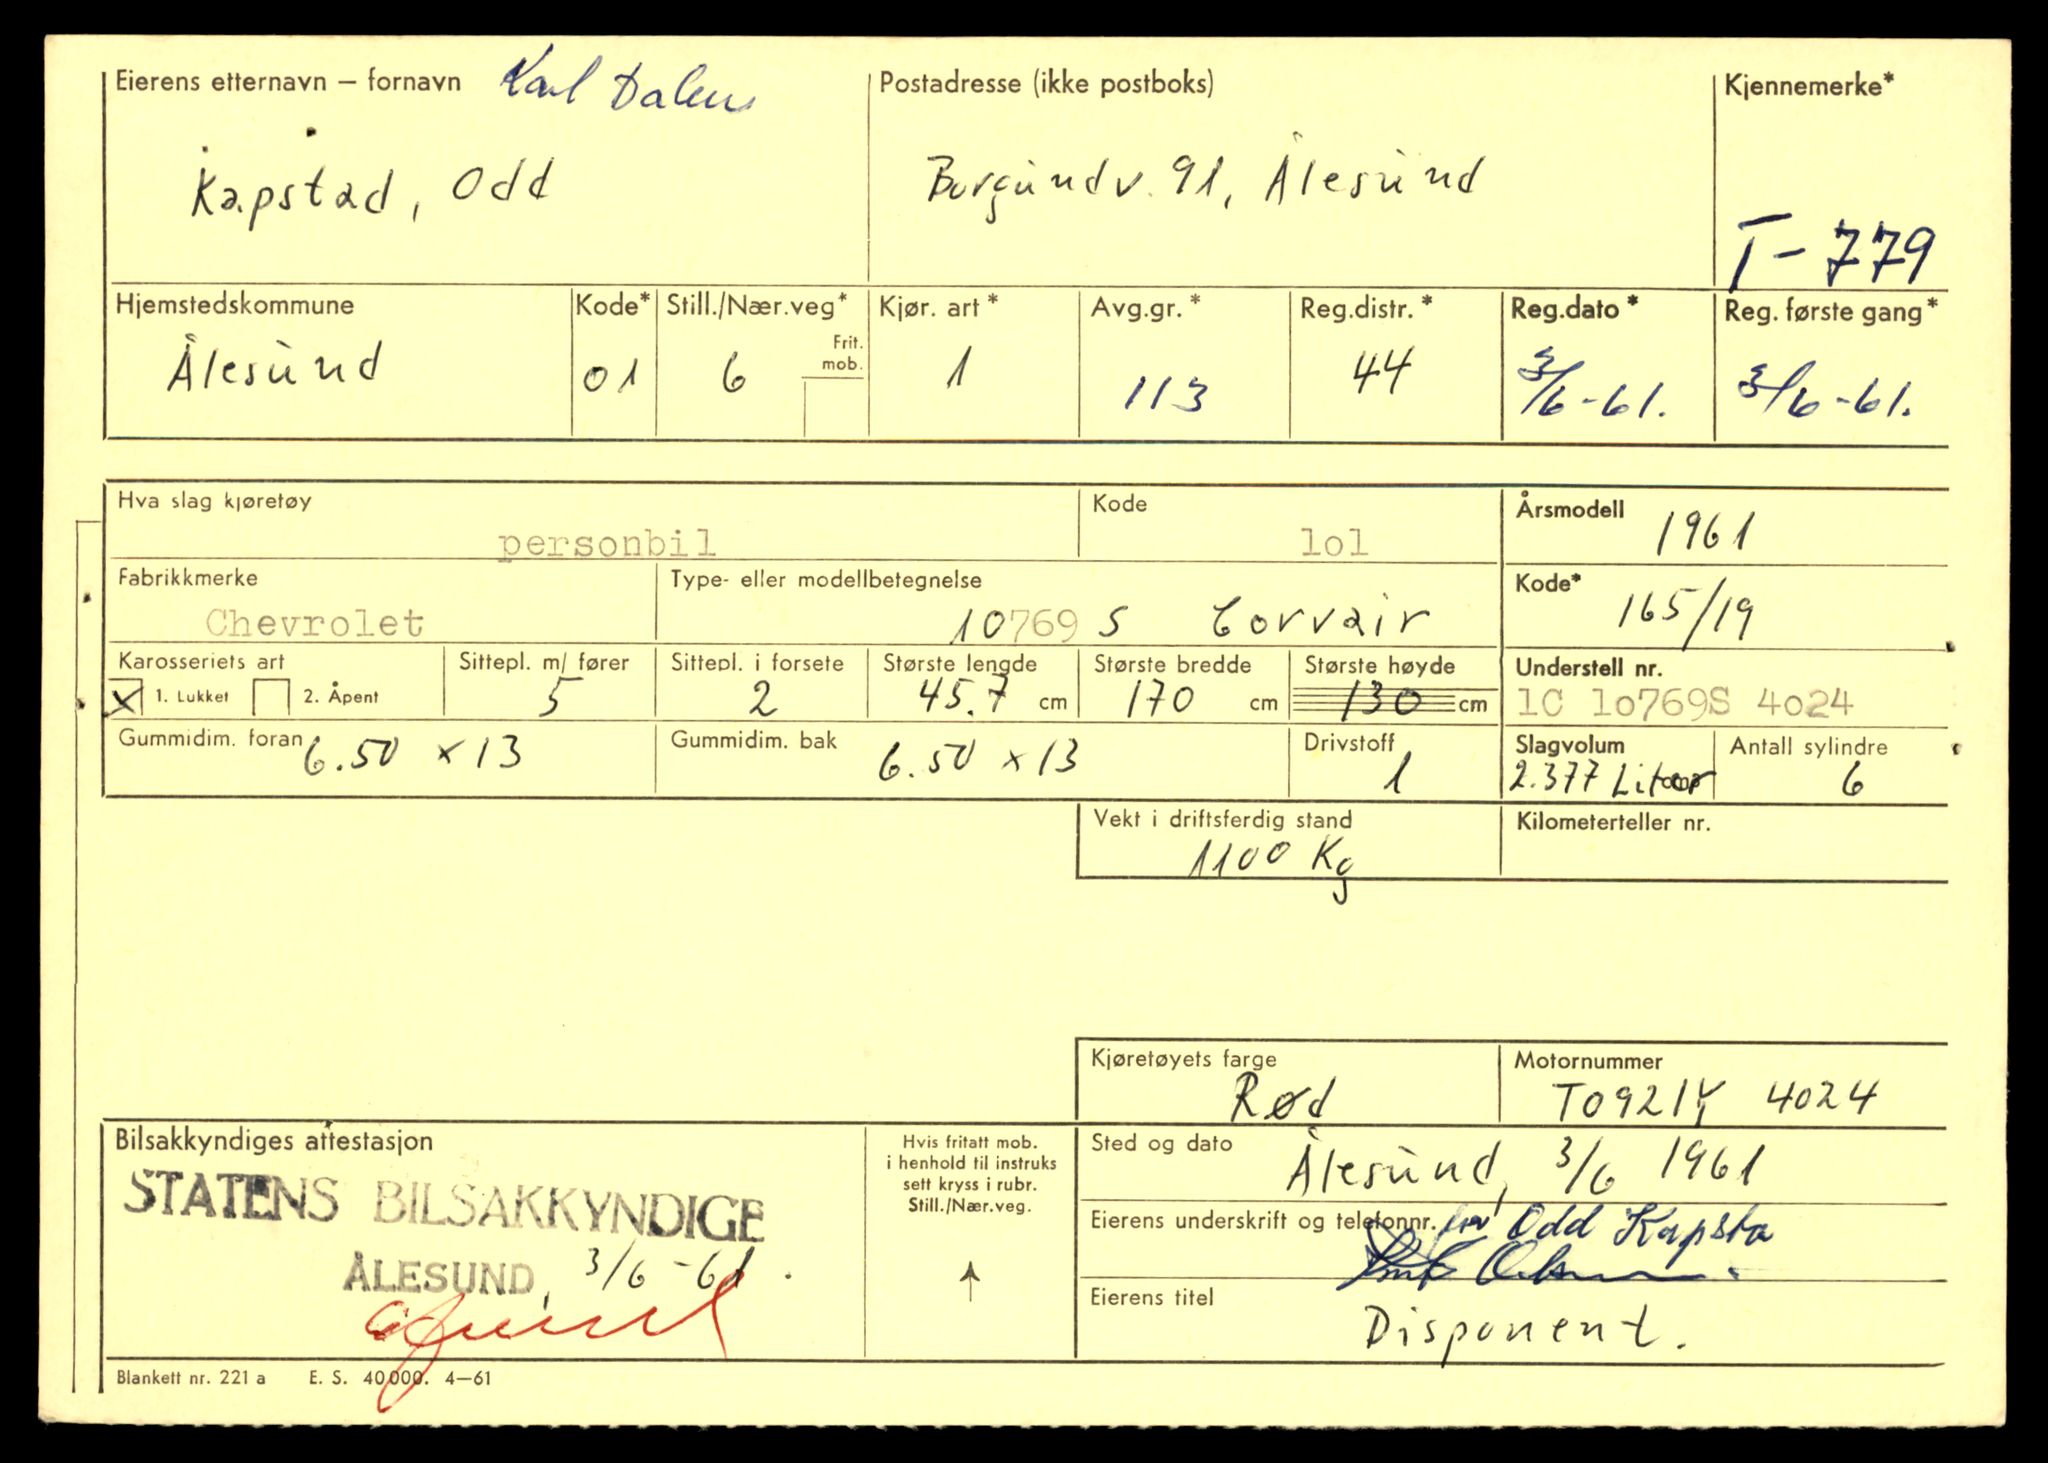 Eierens etternavn – fornavn Karl Dalen
Kapstad, Odd
Postadresse (ikke postboks)
Borgundv. 91, Ålesund
Kjennemerke*
T-779
Hjemstedskommune
Ålesund
Kode*
01
Still./Nær.veg*
6
Frit.
mob.
Kjør. art*
1
Avg.gr.*
113
Reg.distr.*
44
Reg.dato*
3/6-61.
Reg. første gang*
3/6-61.
Hva slag kjøretøy
personbil
Kode
lol
Årsmodell
1961
Fabrikkmerke
Chevrolet
Type- eller modellbetegnelse
10769 S Corvair
Kode*
165/19
Karosseriets art
x 1. Lukket 2. Åpent
Sittepl. m/ fører
5
Sittepl. i forsete
2
Største lengde
45.7 cm
Største bredde
170 cm
Største høyde
130 cm
Understell nr.
1C 10769S 4024
Gummidim. foran
6.50 x 13
Gummidim. bak
6.50 x 13
Drivstoff
1
Slagvolum
2.377 Liter
Antall sylindre
6
Vekt i driftsferdig stand
1100 Kg
Kilometerteller nr.
Kjøretøyets farge
Rød
Motornummer
T0921Y 4024
Bilsakkyndiges attestasjon
STATENS BILSAKKYNDIGE
ÅLESUND, 3/6-61.
Hvis fritatt mob.
i henhold til instruks
sett kryss i rubr.
Still./Nær.veg.
Sted og dato
Ålesund, 3/6 1961
Eierens underskrift og telefonnr. for Odd Kapsta
Eierens titel
Disponent.
Blankett nr. 221 a E. S. 40000. 4–61